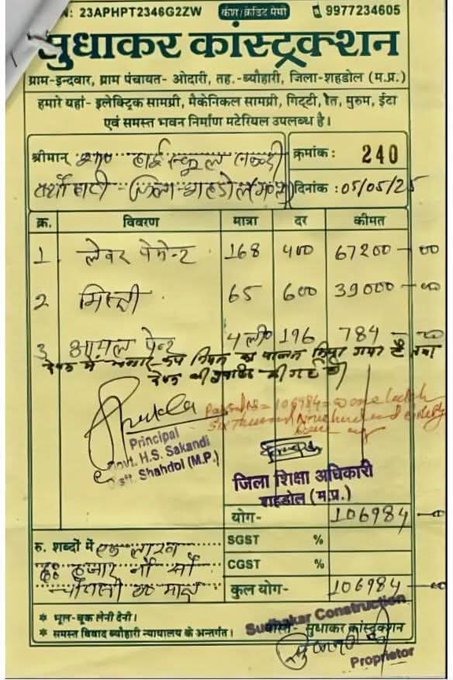 GSTIN: 23APHPT2346G2ZW कैश/क्रेडिट मेमो 9977234605
सुधाकर कांस्ट्रक्शन
ग्राम-इन्दवार, ग्राम पंचायत- ओदारी, तह.-ब्यौहारी, जिला-शहडोल (म.प्र.)
हमारे यहां- इलेक्ट्रिक सामग्री, मैकेनिकल सामग्री, गिट्टी, रेत, मुरुम, ईटा
एवं समस्त भवन निर्माण मटेरियल उपलब्ध है।
श्रीमान् हाई स्कूल क्रमांक: 240
जिला शहडोल म.प्र. दिनांक: 05/05/25
क्र. विवरण मात्रा दर कीमत
1 लेवर पेमेन्ट 168 400 67200-00
2 मिस्त्री 65 600 39000-00
3 आयल पेन्ट 4 ली० 196 784-00
Principal
Govt. H.S. Sakandi
Distt. Shahdol (M.P.)
Passed for Rs = 106984 = one lakh
Six thousand Nine hundred and eighty
four
जिला शिक्षा अधिकारी
शहडोल (म.प्र.)
योग- 106984-00
रु. शब्दों में एक लाख SGST %
छः हजार नौ सौ CGST %
चौरासी रू मात्र कुल योग- 106984-00
* भूल-चूक लेनी देनी।
* समस्त विवाद ब्यौहारी न्यायालय के अन्तर्गत।
Sudhakar Construction
वास्ते- सुधाकर कांस्ट्रक्शन
Proprietor